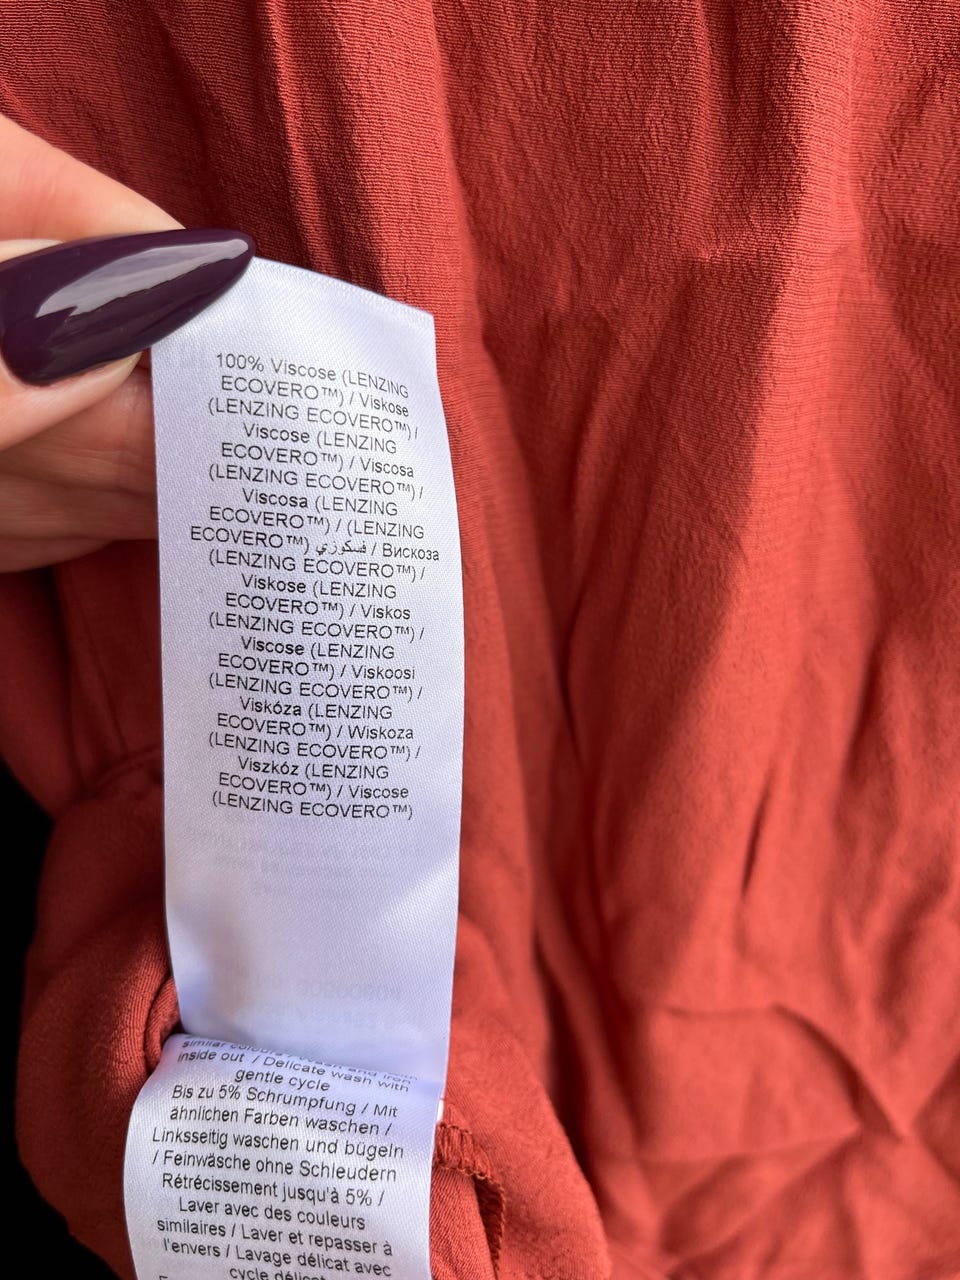 100% Viscose (LENZING
ECOVERO™) / Viskose
(LENZING ECOVERO™) /
Viscose (LENZING
ECOVERO™) / Viscosa
(LENZING ECOVERO™) /
Viscosa (LENZING
ECOVERO™) / (LENZING
ECOVERO™) فسكوزي / Вискоза
(LENZING ECOVERO™) /
Viskose (LENZING
ECOVERO™) / Viskos
(LENZING ECOVERO™) /
Viscose (LENZING
ECOVERO™) / Viskoosi
(LENZING ECOVERO™) /
Viskóza (LENZING
ECOVERO™) / Wiskoza
(LENZING ECOVERO™) /
Viszkóz (LENZING
ECOVERO™) / Viscose
(LENZING ECOVERO™)
similar colours / Wash and iron
inside out / Delicate wash with
gentle cycle
Bis zu 5% Schrumpfung / Mit
ähnlichen Farben waschen /
Linksseitig waschen und bügeln
/ Feinwäsche ohne Schleudern
Rétrécissement jusqu'à 5% /
Laver avec des couleurs
similaires / Laver et repasser à
l'envers / Lavage délicat avec
cycle délicat